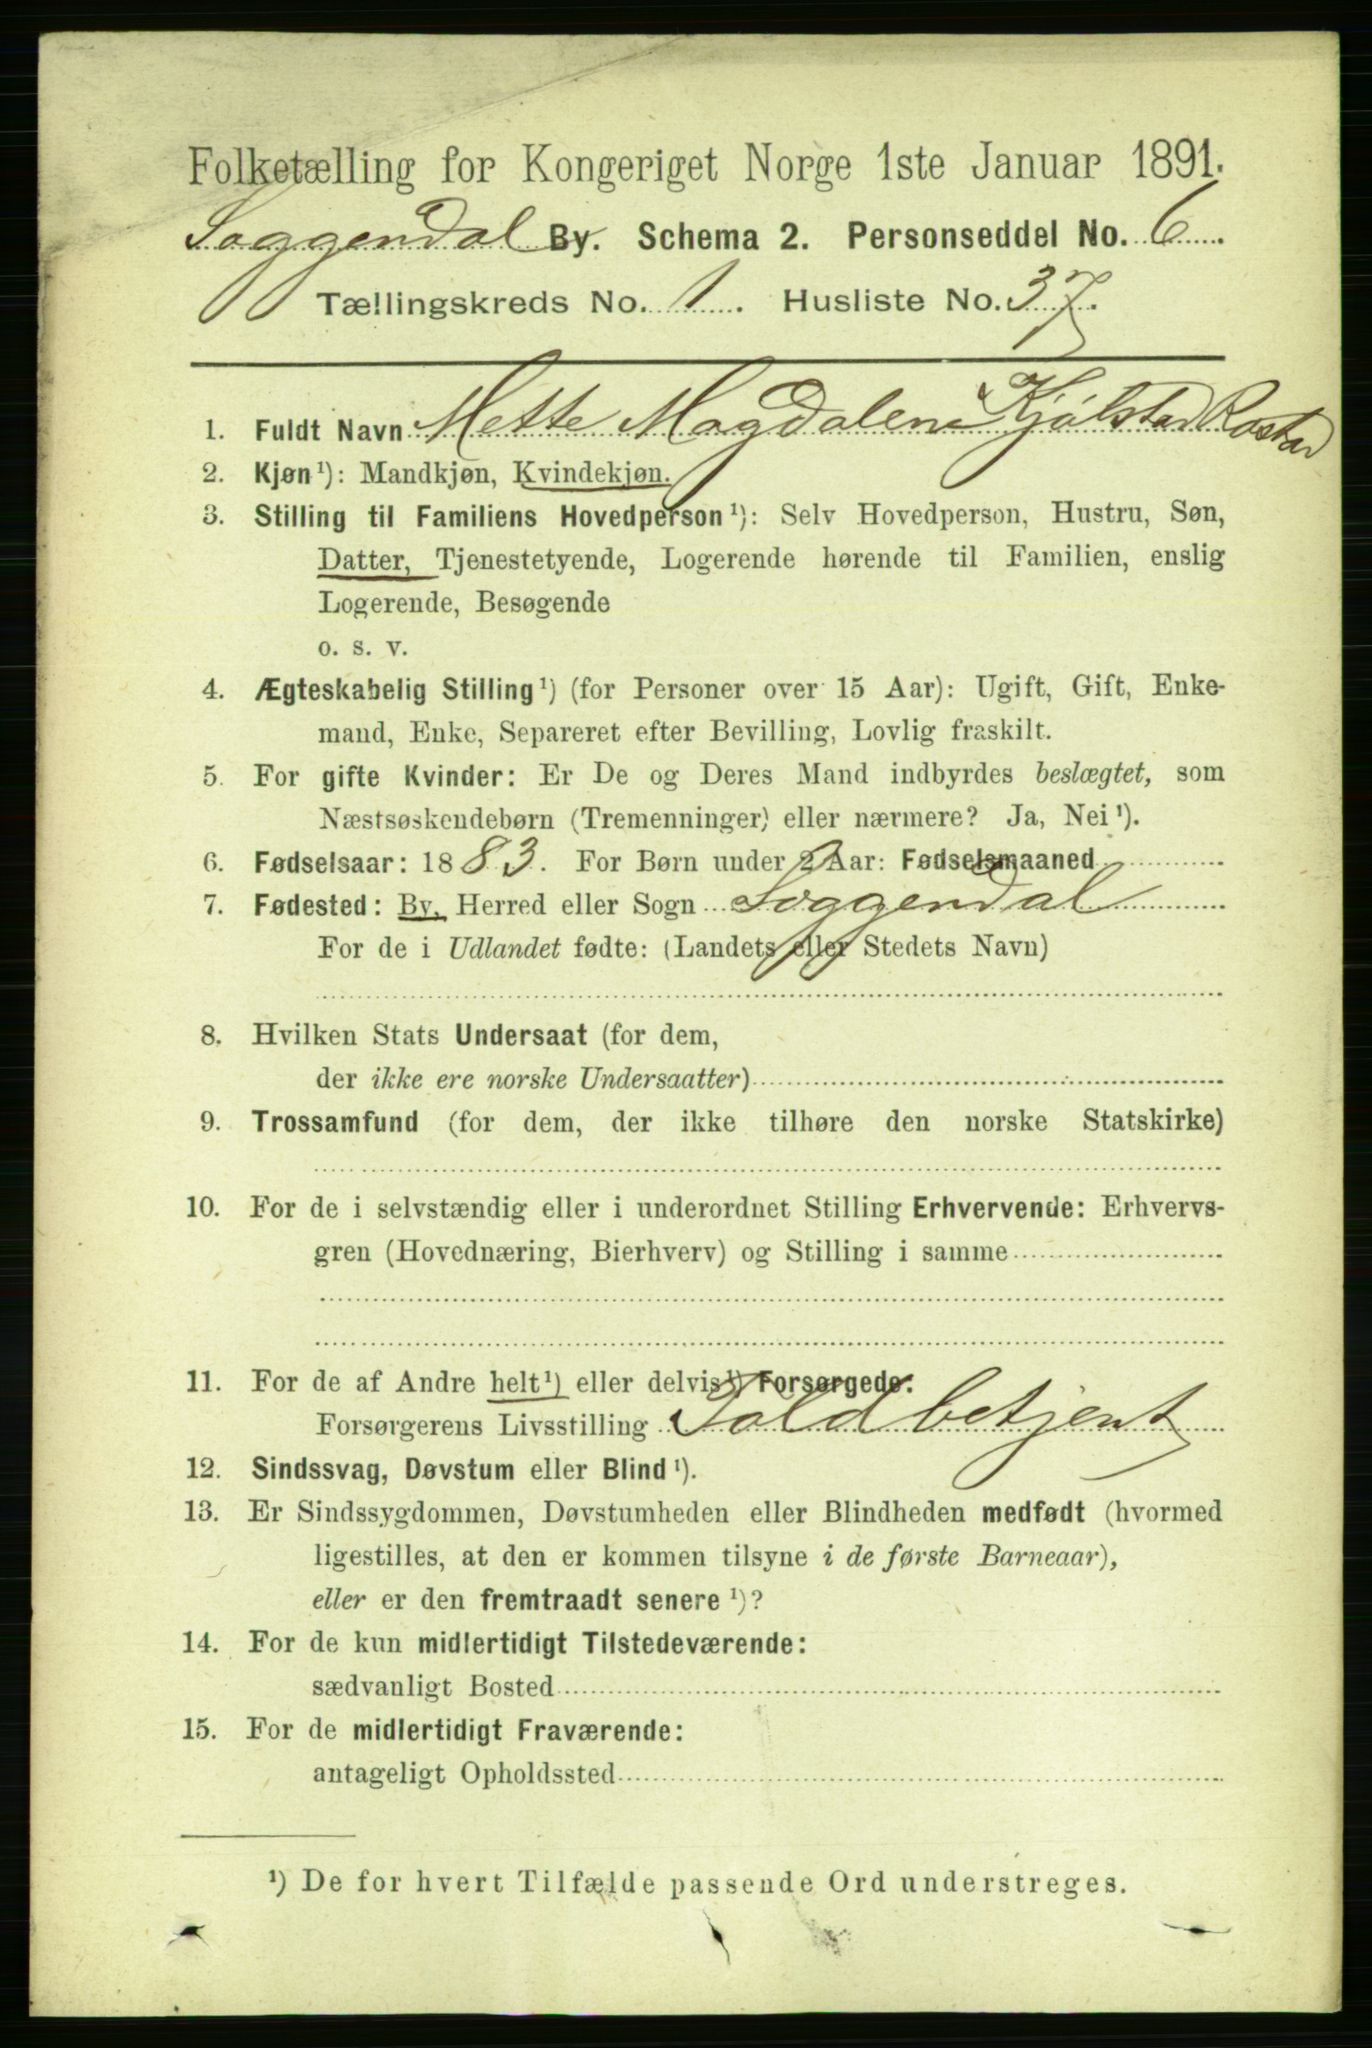 Folketælling for Kongeriget Norge 1ste Januar 1891.
Soggendal By. Schema 2. Personseddel No. 6
Tællingskreds No. 1. Husliste No. 37.
1. Fuldt Navn Mette Magdalene Kjølstad Rostad
2. Kjøn ¹): Mandkjøn, Kvindekjøn.
3. Stilling til Familiens Hovedperson ¹): Selv Hovedperson, Hustru, Søn,
Datter, Tjenestetyende, Logerende hørende til Familien, enslig
Logerende, Besøgende
o. s. v.
4. Ægteskabelig Stilling ¹) (for Personer over 15 Aar): Ugift, Gift, Enke-
mand, Enke, Separeret efter Bevilling, Lovlig fraskilt.
5. For gifte Kvinder: Er De og Deres Mand indbyrdes beslægtet, som
Næstsøskendebørn (Tremenninger) eller nærmere? Ja, Nei ¹).
6. Fødselsaar: 1883. For Børn under 2 Aar: Fødselsmaaned
7. Fødested: By, Herred eller Sogn Soggendal
For de i Udlandet fødte: (Landets eller Stedets Navn)
8. Hvilken Stats Undersaat (for dem,
der ikke ere norske Undersaatter)
9. Trossamfund (for dem, der ikke tilhøre den norske Statskirke)
10. For de i selvstændig eller i underordnet Stilling Erhvervende: Erhvervs-
gren (Hovednæring, Bierhverv) og Stilling i samme
11. For de af Andre helt ¹) eller delvis ¹) Forsørgede:
Forsørgerens Livsstilling Toldbetjent
12. Sindssvag, Døvstum eller Blind ¹).
13. Er Sindssygdommen, Døvstumheden eller Blindheden medfødt (hvormed
ligestilles, at den er kommen tilsyne i de første Barneaar),
eller er den fremtraadt senere ¹)?
14. For de kun midlertidigt Tilstedeværende:
sædvanligt Bosted
15. For de midlertidigt Fraværende:
antageligt Opholdssted
¹) De for hvert Tilfælde passende Ord understreges.